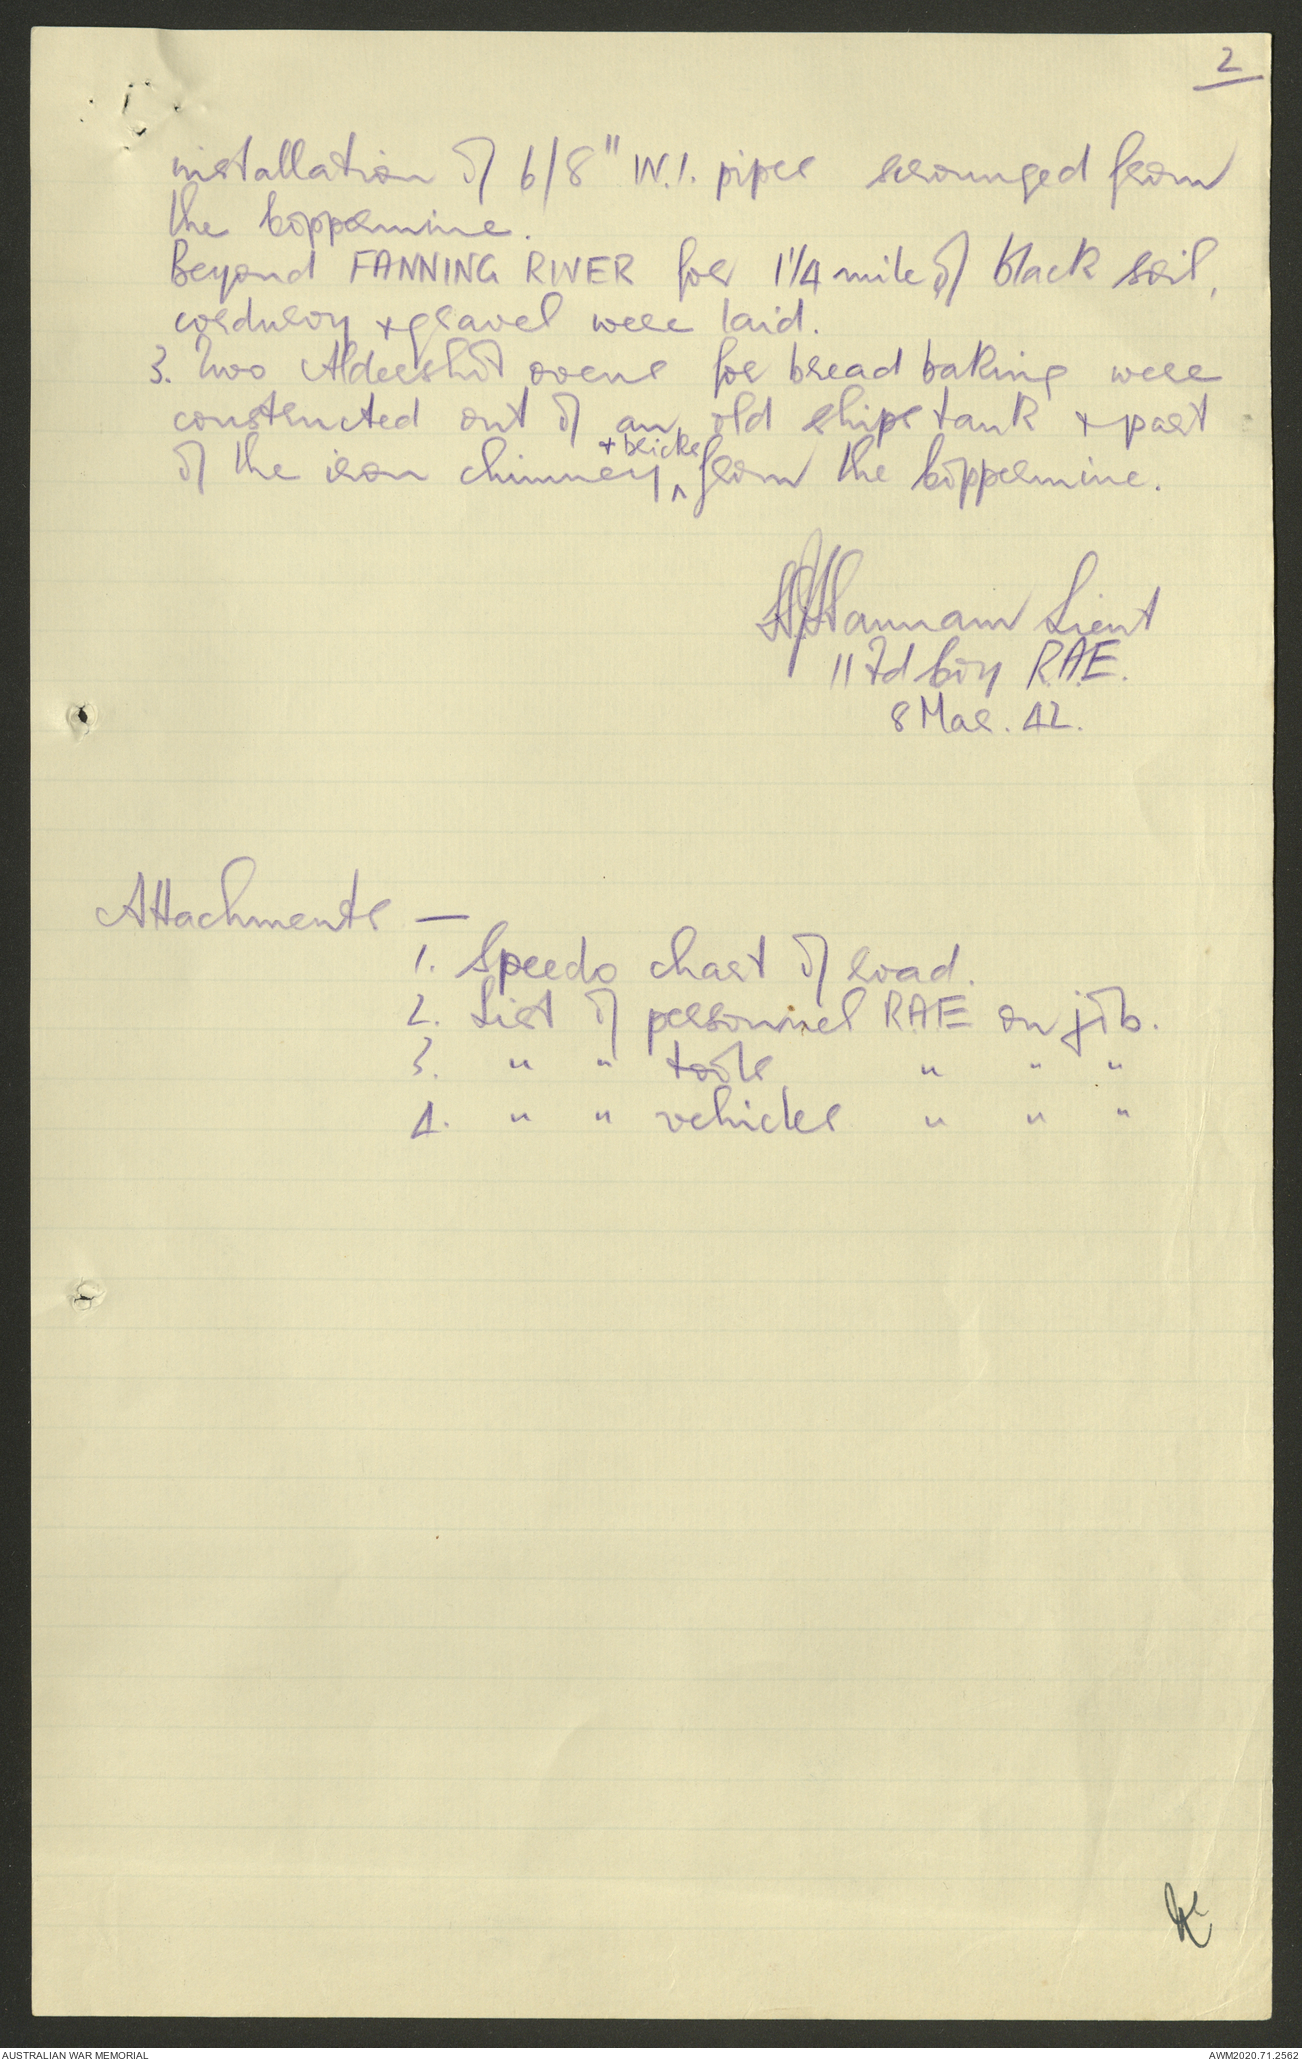 2
installation of 6/8" W.I. pipes scrounged from
the Coppermine.
Beyond FANNING RIVER for 1 1/4 mile of black soil,
corduroy + gravel were laid.
3. Two Aldershot ovens for bread baking were
constructed out of an old ships tank + part
of the iron chimney + bricks from the Coppermine.
Hannam Lieut
11 Fd Coy RAE.
8 Mar. 42.
Attachments —
1. Speedo chart of road.
2. List of personnel RAE on job.
3. " " tools " " "
4. " " vehicles " " "
AUSTRALIAN WAR MEMORIAL
AWM2020.71.2562